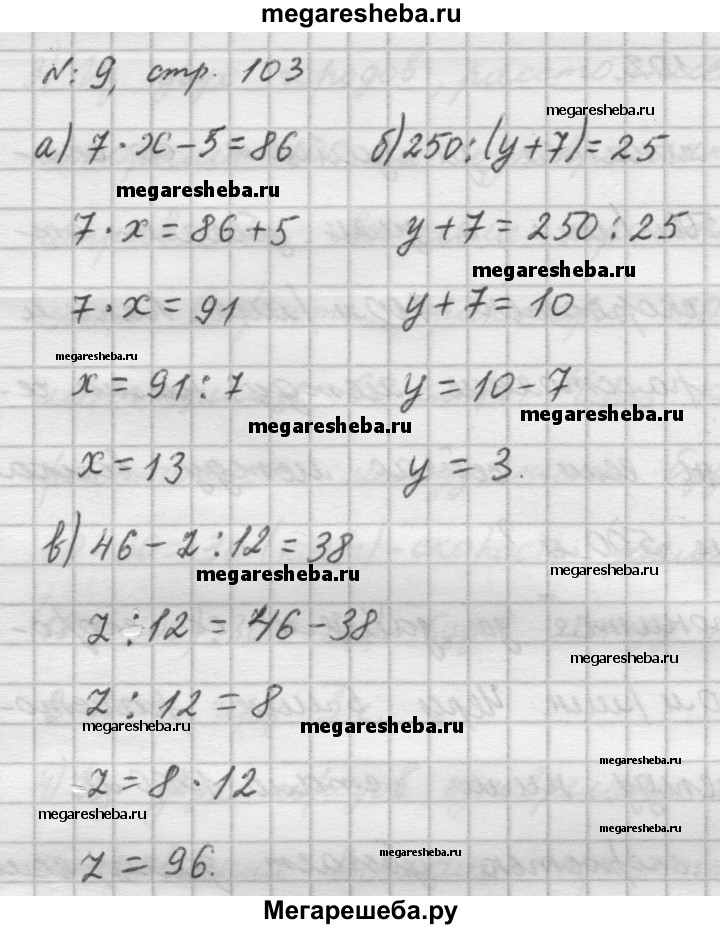 megaresheba.ru
№ 9, стр. 103
megaresheba.ru
а) 7 · x − 5 = 86
б) 250 : (y + 7) = 25
megaresheba.ru
7 · x = 86 + 5
y + 7 = 250 : 25
megaresheba.ru
7 · x = 91
y + 7 = 10
megaresheba.ru
x = 91 : 7
y = 10 − 7
megaresheba.ru
megaresheba.ru
x = 13
y = 3.
в) 46 − z : 12 = 38
megaresheba.ru
megaresheba.ru
z : 12 = 46 − 38
megaresheba.ru
z : 12 = 8
megaresheba.ru
megaresheba.ru
megaresheba.ru
z = 8 · 12
megaresheba.ru
megaresheba.ru
z = 96.
megaresheba.ru
Мегарешеба.ру